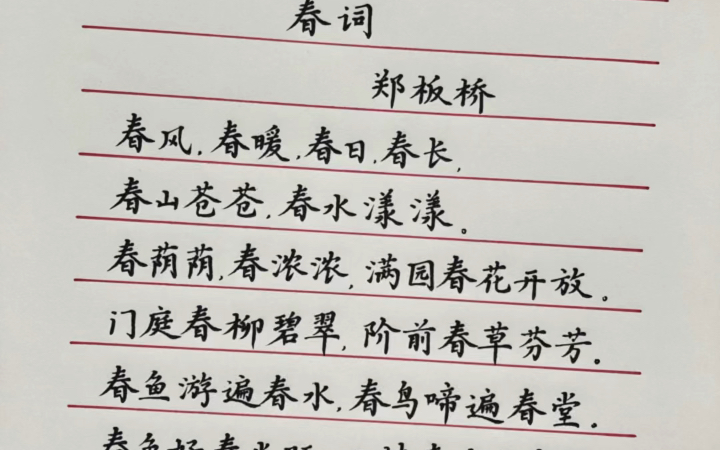 春词
郑板桥
春风,春暖,春日,春长,
春山苍苍,春水漾漾。
春荫荫,春浓浓,满园春花开放。
门庭春柳碧翠,阶前春草芬芳。
春鱼游遍春水,春鸟啼遍春堂。